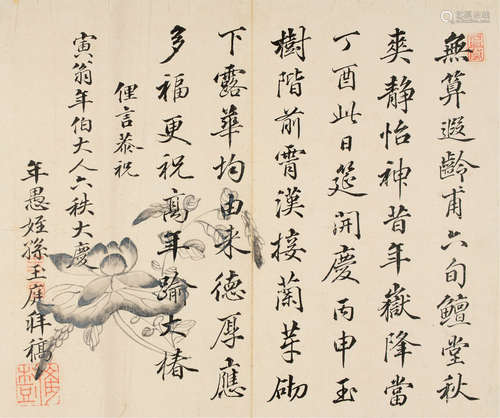 無算遐齡甫六旬鱣堂秋
爽靜怡神昔年嶽降當
丁酉此日筵開慶丙申玉
樹階前霄漢接蘭芽砌
下露華均由来德厚應
多福更祝高年踰大椿
俚言恭祝
寅翁年伯大人六秩大慶
年愚姪孫玉庭拜稿